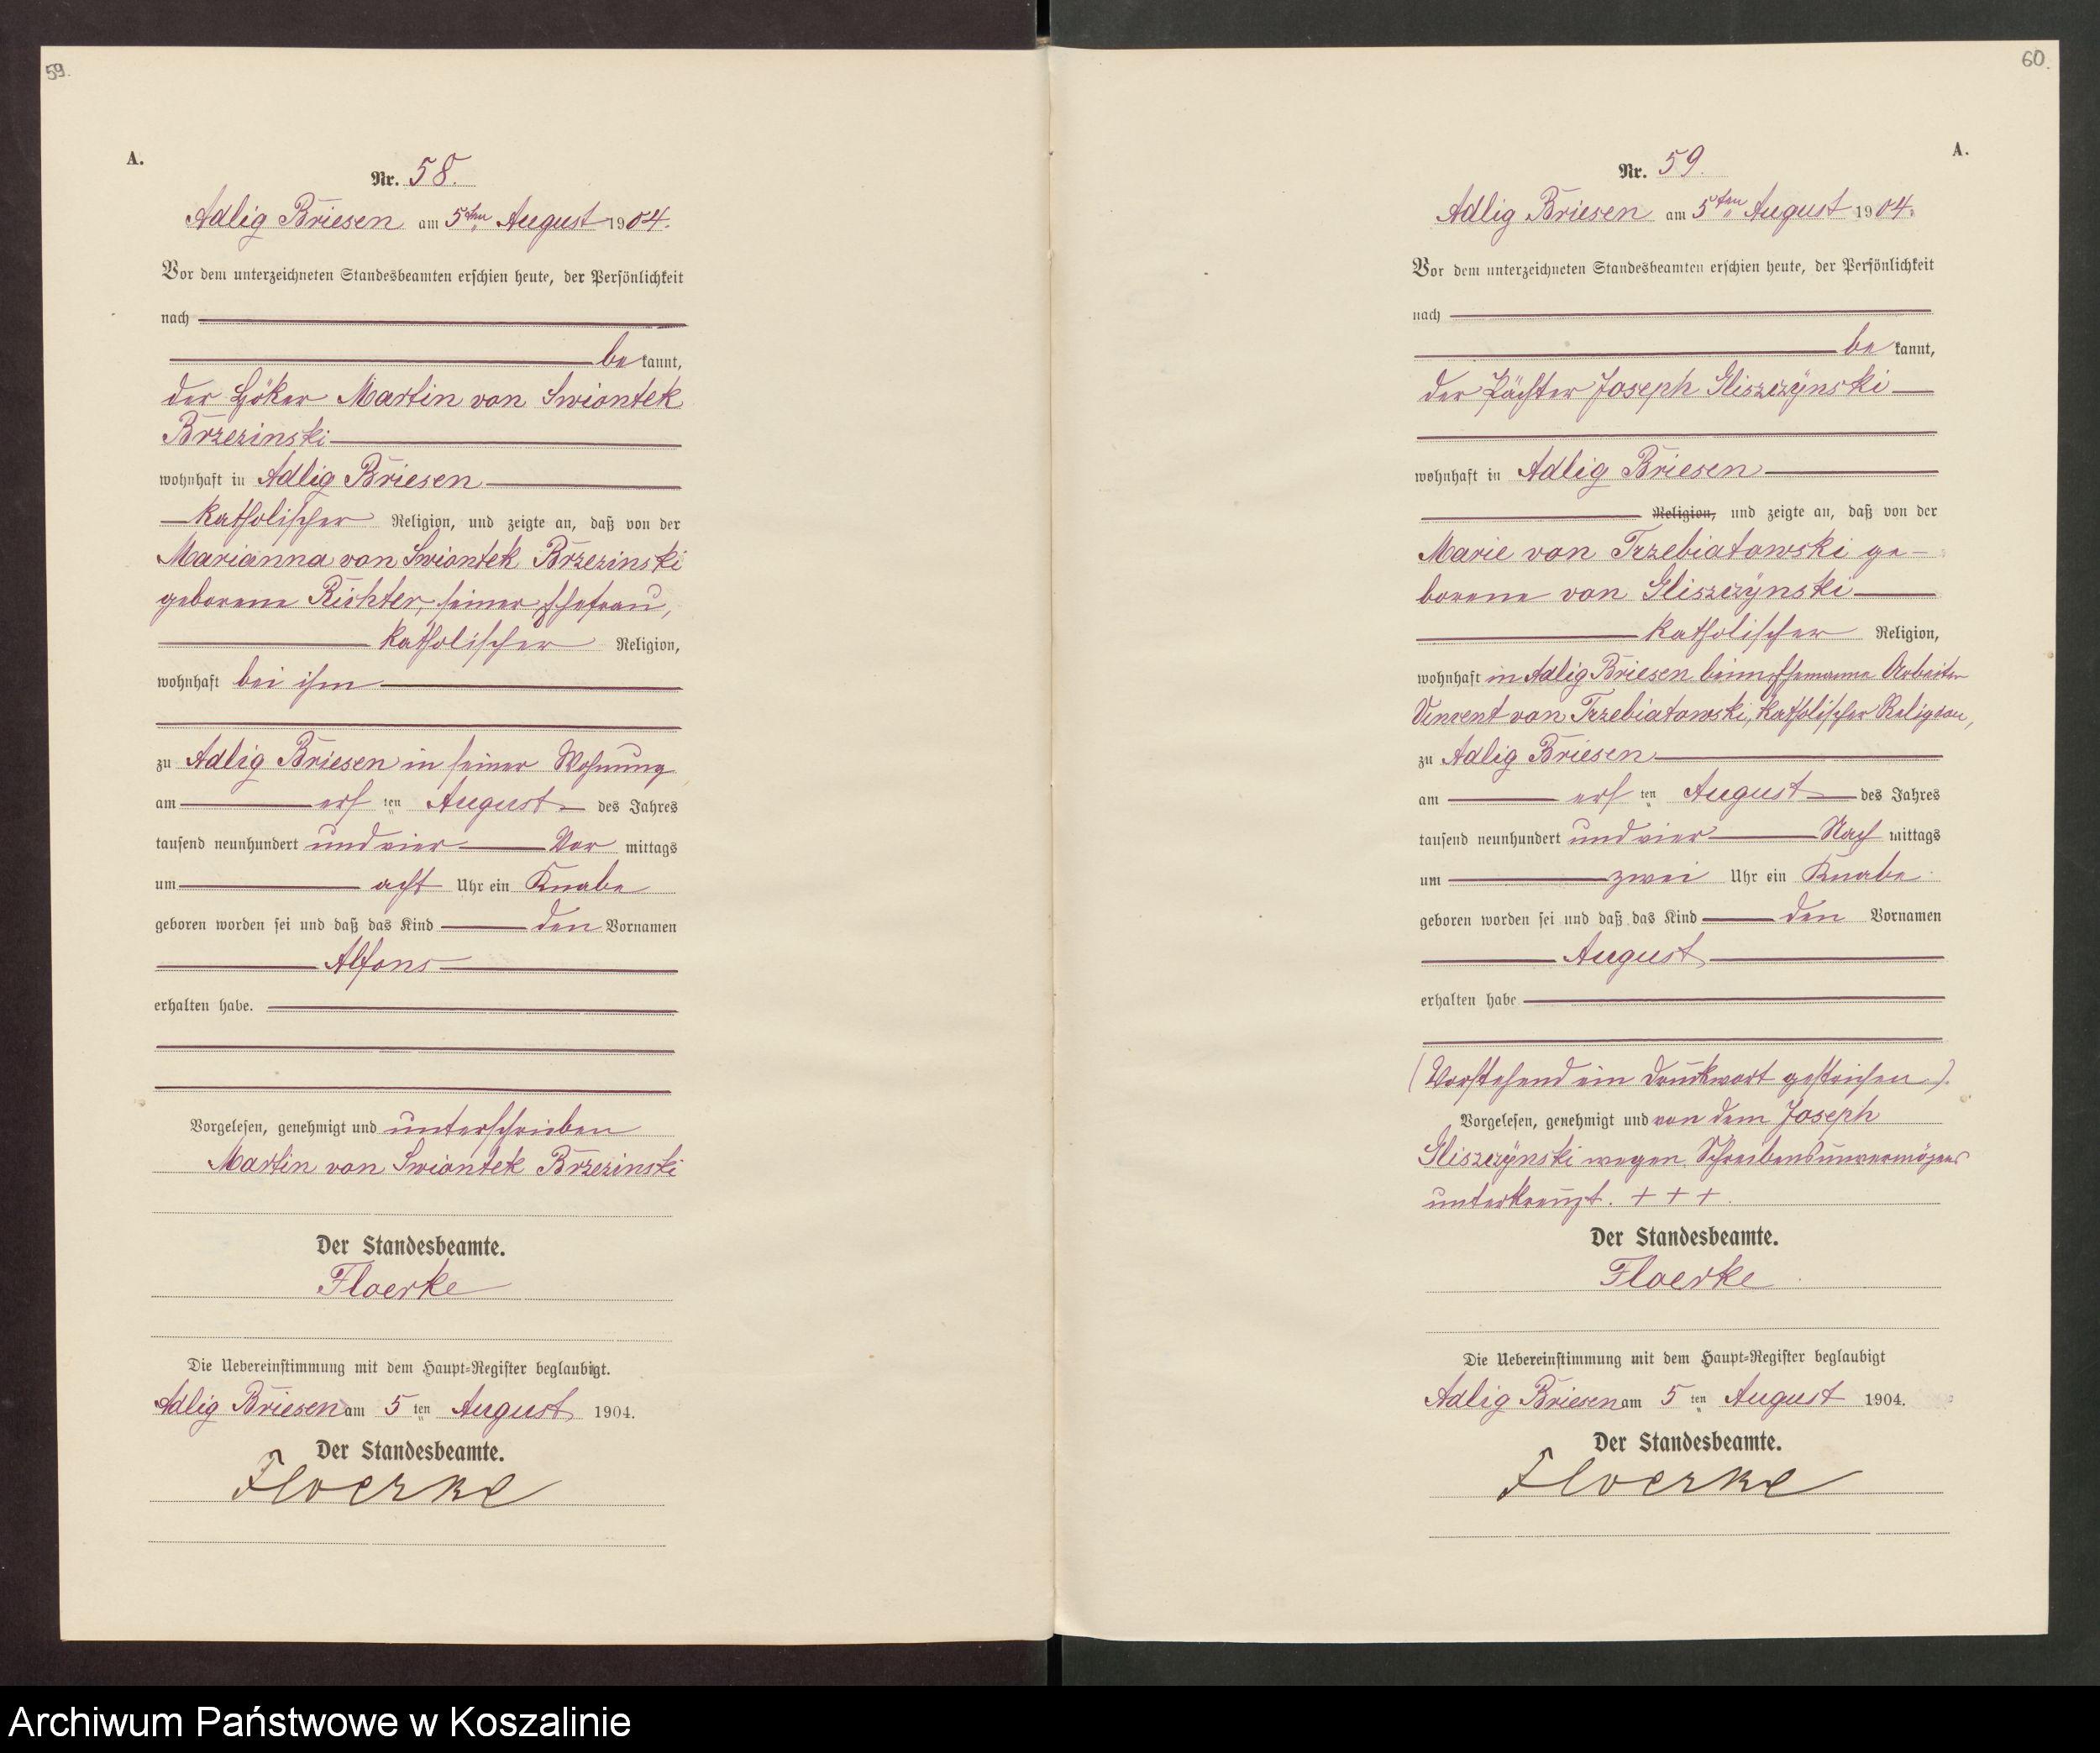 59.
A.
Nr. 58.
Adlig Briesen am 5ten August 1904.
Vor dem unterzeichneten Standesbeamten erschien heute, der Persönlichkeit
nach
be kannt,
der Höker Martin von Swiontek
Brzezinski
wohnhaft in Adlig Briesen
katholischer Religion, und zeigte an, daß von der
Marianna von Swiontek Brzezinski
geborene Richter, seiner Ehefrau,
katholischer Religion,
wohnhaft bei ihm
zu Adlig Briesen in seiner Wohnung
am ersten August des Jahres
tausend neunhundert und vier Vor mittags
um acht Uhr ein Knabe
geboren worden sei und daß das Kind den Vornamen
Alfons
erhalten habe.
Vorgelesen, genehmigt und unterschrieben
Martin von Swiontek Brzezinski
Der Standesbeamte.
Floerke
Die Uebereinstimmung mit dem Haupt-Register beglaubigt.
Adlig Briesen am 5ten August 1904.
Der Standesbeamte.
Floerke
60.
A.
Nr. 59.
Adlig Briesen am 5ten August 1904.
Vor dem unterzeichneten Standesbeamten erschien heute, der Persönlichkeit
nach
be kannt,
der Pächter Joseph Gliszczÿnski
wohnhaft in Adlig Briesen
Religion, und zeigte an, daß von der
Marie von Trzebiatowski ge-
borene von Gliszczÿnski
katholischer Religion,
wohnhaft in Adlig Briesen beim Ehemanne Arbeiter
Vincent von Trzebiatowski, katholischer Religion,
zu Adlig Briesen
am ersten August des Jahres
tausend neunhundert und vier Nach mittags
um zwei Uhr ein Knabe
geboren worden sei und daß das Kind den Vornamen
August
erhalten habe
(Vorstehend ein Druckwort gestrichen.)
Vorgelesen, genehmigt und von dem Joseph
Gliszczÿnski wegen Schreibensunvermögens
unterkreuzt. + + +.
Der Standesbeamte.
Floerke
Die Uebereinstimmung mit dem Haupt-Register beglaubigt
Adlig Briesen am 5ten August 1904.
Der Standesbeamte.
Floerke
Archiwum Państwowe w Koszalinie